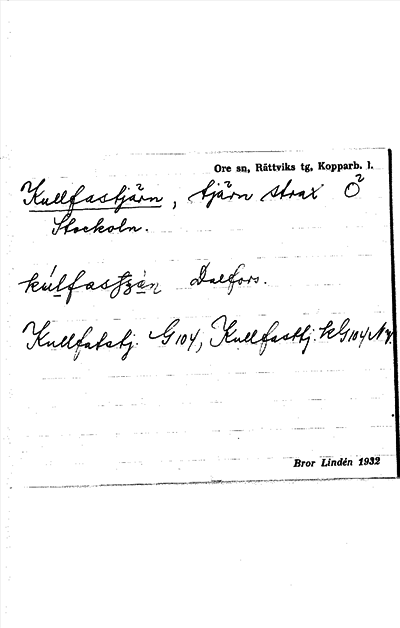 Ore sn, Rättviks tg, Kopparb. l.
Kullfastjärn, tjärn strax Ö
Stockoln.
Dalfors.
Kullfatstj. G 104, Kullfasttj. kG 104 Ny.
Bror Lindén 1932